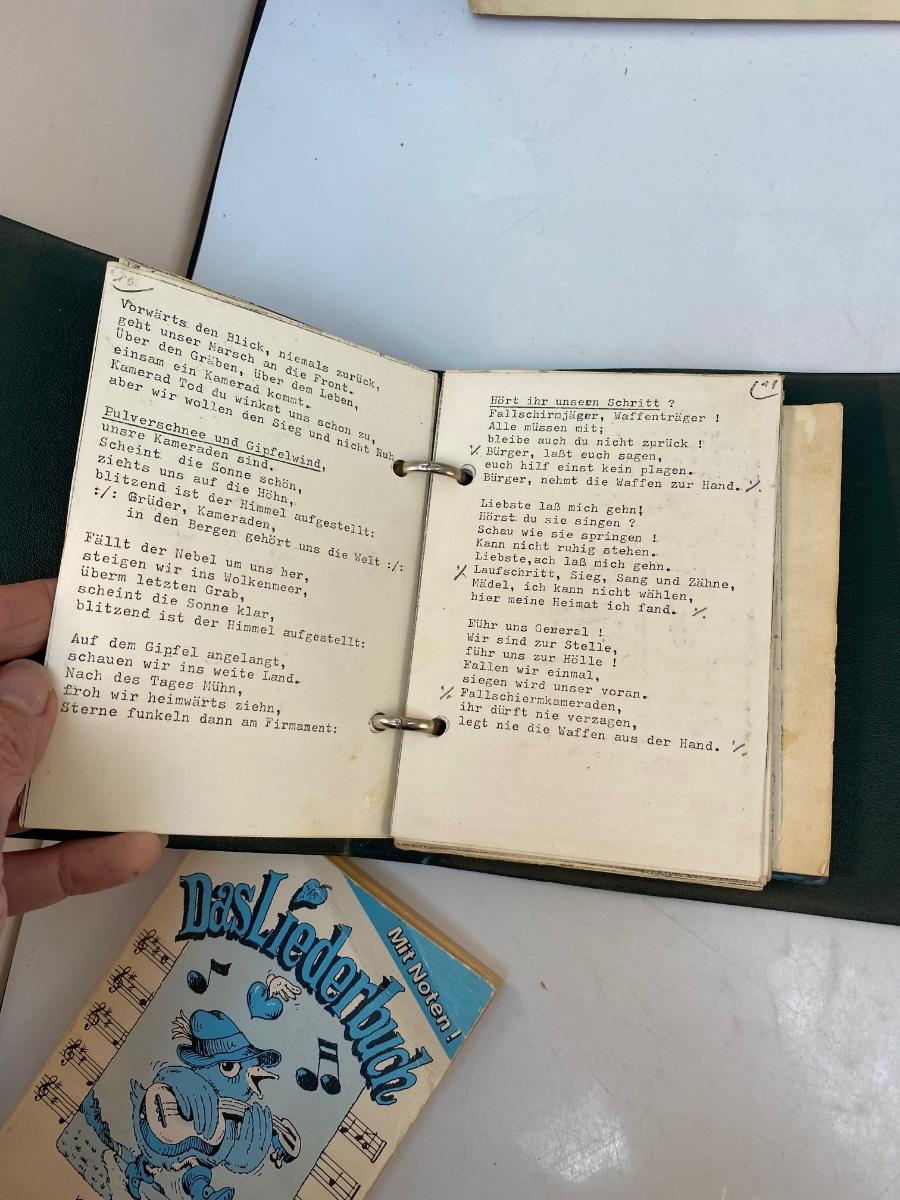 Vorwärts den Blick, niemals zurück,
geht unser Marsch an die Front.
Über den Gräben, über dem Leben,
einsam ein Kamerad kommt.
Kamerad Tod du winkst uns schon zu,
aber wir wollen den Sieg und nicht Ruh
Pulverschnee und Gipfelwind,
unsre Kameraden sind.
Scheint die Sonne schön,
ziehts uns auf die Höhn,
blitzend ist der Himmel aufgestellt:
:/: Brüder, Kameraden,
in den Bergen gehört uns die Welt :/:
Fällt der Nebel um uns her,
steigen wir ins Wolkenmeer,
überm letzten Grab,
scheint die Sonne klar,
blitzend ist der Himmel aufgestellt:
Auf dem Gipfel angelangt,
schauen wir ins weite Land.
Nach des Tages Mühn,
froh wir heimwärts ziehn,
Sterne funkeln dann am Firmament:
Hört ihr unsern Schritt ?
Fallschirmjäger, Waffenträger !
Alle müssen mit;
bleibe auch du nicht zurück !
⁒ Bürger, laßt euch sagen,
euch hilf einst kein plagen.
Bürger, nehmt die Waffen zur Hand. ⁒
Liebste laß mich gehn!
Hörst du sie singen ?
Schau wie sie springen !
Kann nicht ruhig stehen.
Liebste,ach laß mich gehn.
⁒ Laufschritt, Sieg, Sang und Zähne,
Mädel, ich kann nicht wählen,
hier meine Heimat ich fand. ⁒
Führ uns General !
Wir sind zur Stelle,
führ uns zur Hölle !
Fallen wir einmal,
siegen wird unser voran.
⁒ Fallschiermkameraden,
ihr dürft nie verzagen,
legt nie die Waffen aus der Hand. ⁒
Das Liederbuch
Mit Noten !